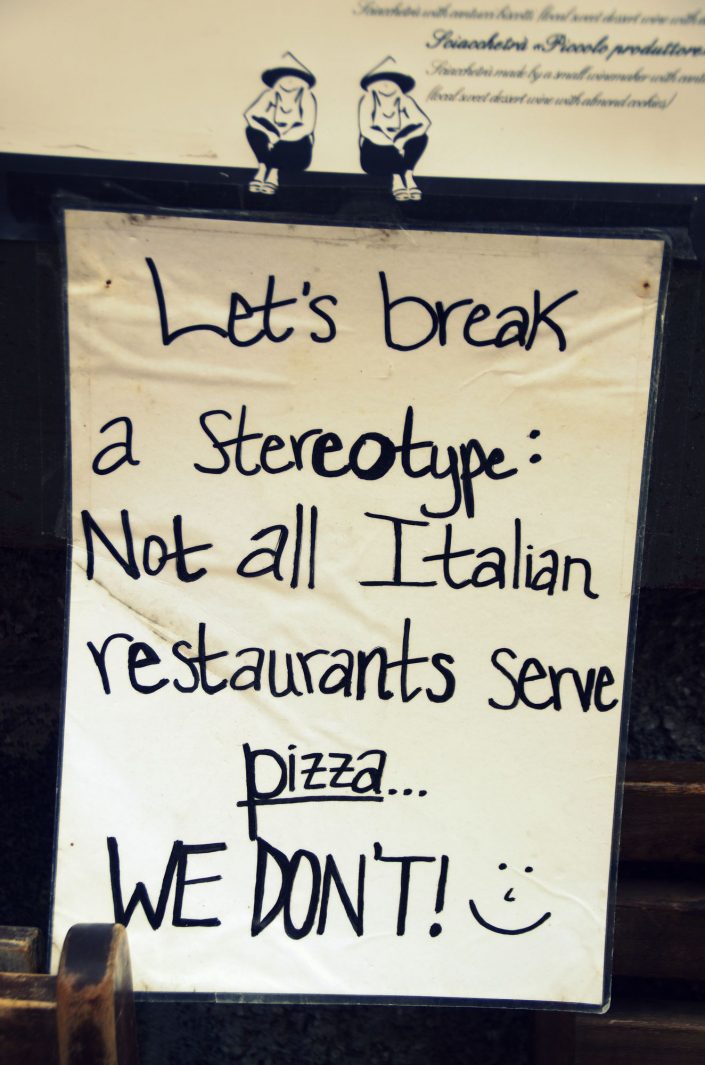 Sciacchetrà with cantucci biscotti /local sweet dessert wine with
Sciacchetrà «Piccolo produttore
Sciacchetrà made by a small winemaker with
/local sweet dessert wine with almond cookies/
Let's break
a stereotype:
Not all Italian
restaurants serve
pizza...
WE DON'T!